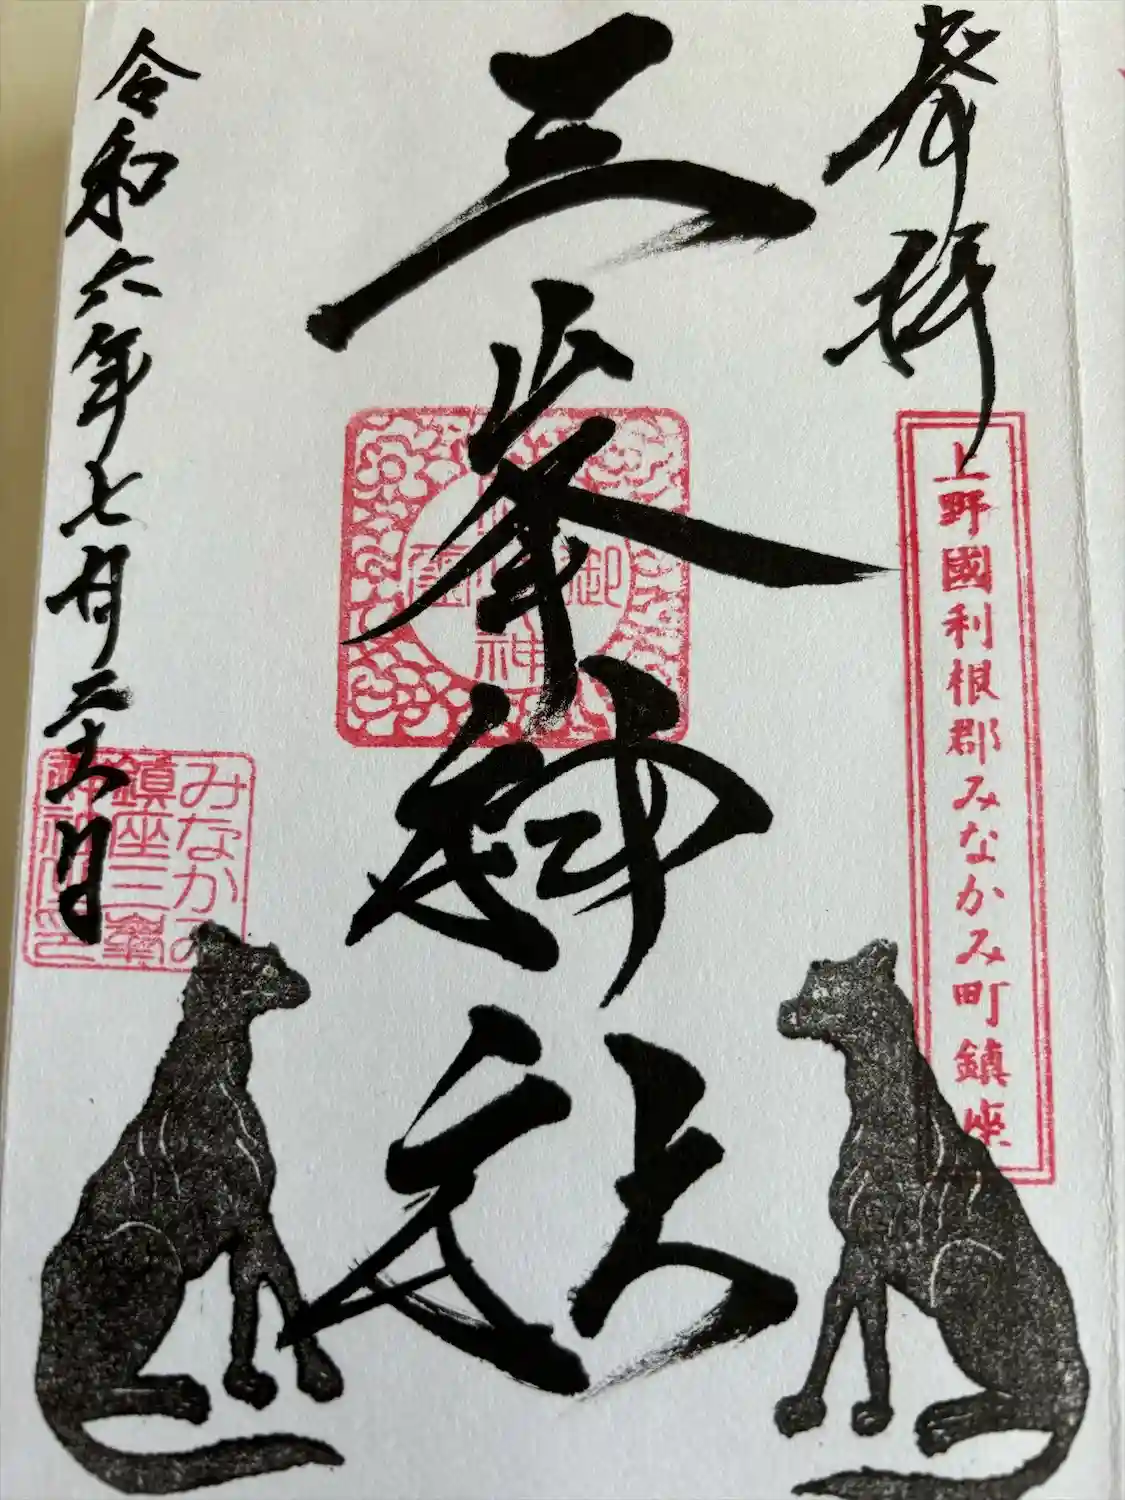 奉拝
上野國利根郡みなかみ町鎮座
三峯神社
令和六年七月二十八日
みなかみ
鎮座三峯
神社之印